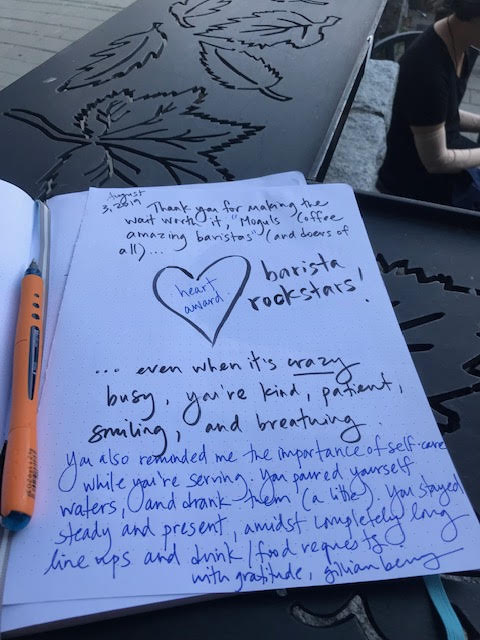 August
3, 2019
Thank you for making the
wait worth it, "Moguls Coffee
amazing baristas" (and doers of
all)...
heart
award
barista
rockstars!
... even when it's crazy
busy, you're kind, patient,
smiling, and breathing.
You also reminded me the importance of self-care
while you're serving. You poured yourself
waters, and drank them (a little). You stayed
steady and present, amidst completely long
line ups and drink/food requests.
with gratitude, gillian